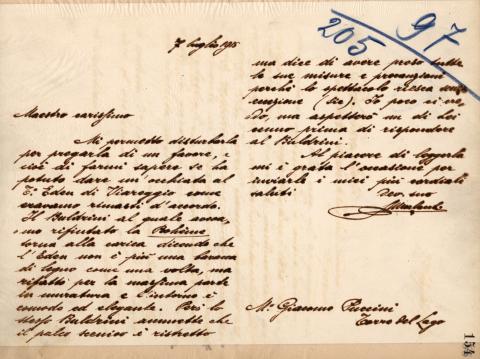 7 luglio 1915
Maestro carissimo
Mi permetto disturbarla
per pregarla di un favore, e
cioè di farmi sapere se ha
potuto dare un'occhiata al
T. Eden di Viareggio come
eravamo rimasti d'accordo.
Il Baldrini al quale aveva
mo rifiutato la Bohème
torna alla carica dicendo che
l'Eden non è più una baracca
di legno come una volta, ma
rifatto per la massima parte
in muratura e l'interno è
comodo ed elegante. Però lo
stesso Baldrini ammette che
il palco scenico è ristretto
ma dice di avere preso tutte
le sue misure e precauzioni
perchè lo spettacolo riesca
(sic). Io poco ci ve-
do, ma aspetterò un di Lei
cenno prima di rispondere
al Baldrini.
Al piacere di leggerla
mi è grata l'occasione per
inviarle i miei più cordiali
saluti
Dev. suo
M. Giacomo Puccini
Torre del Lago
205
97
154